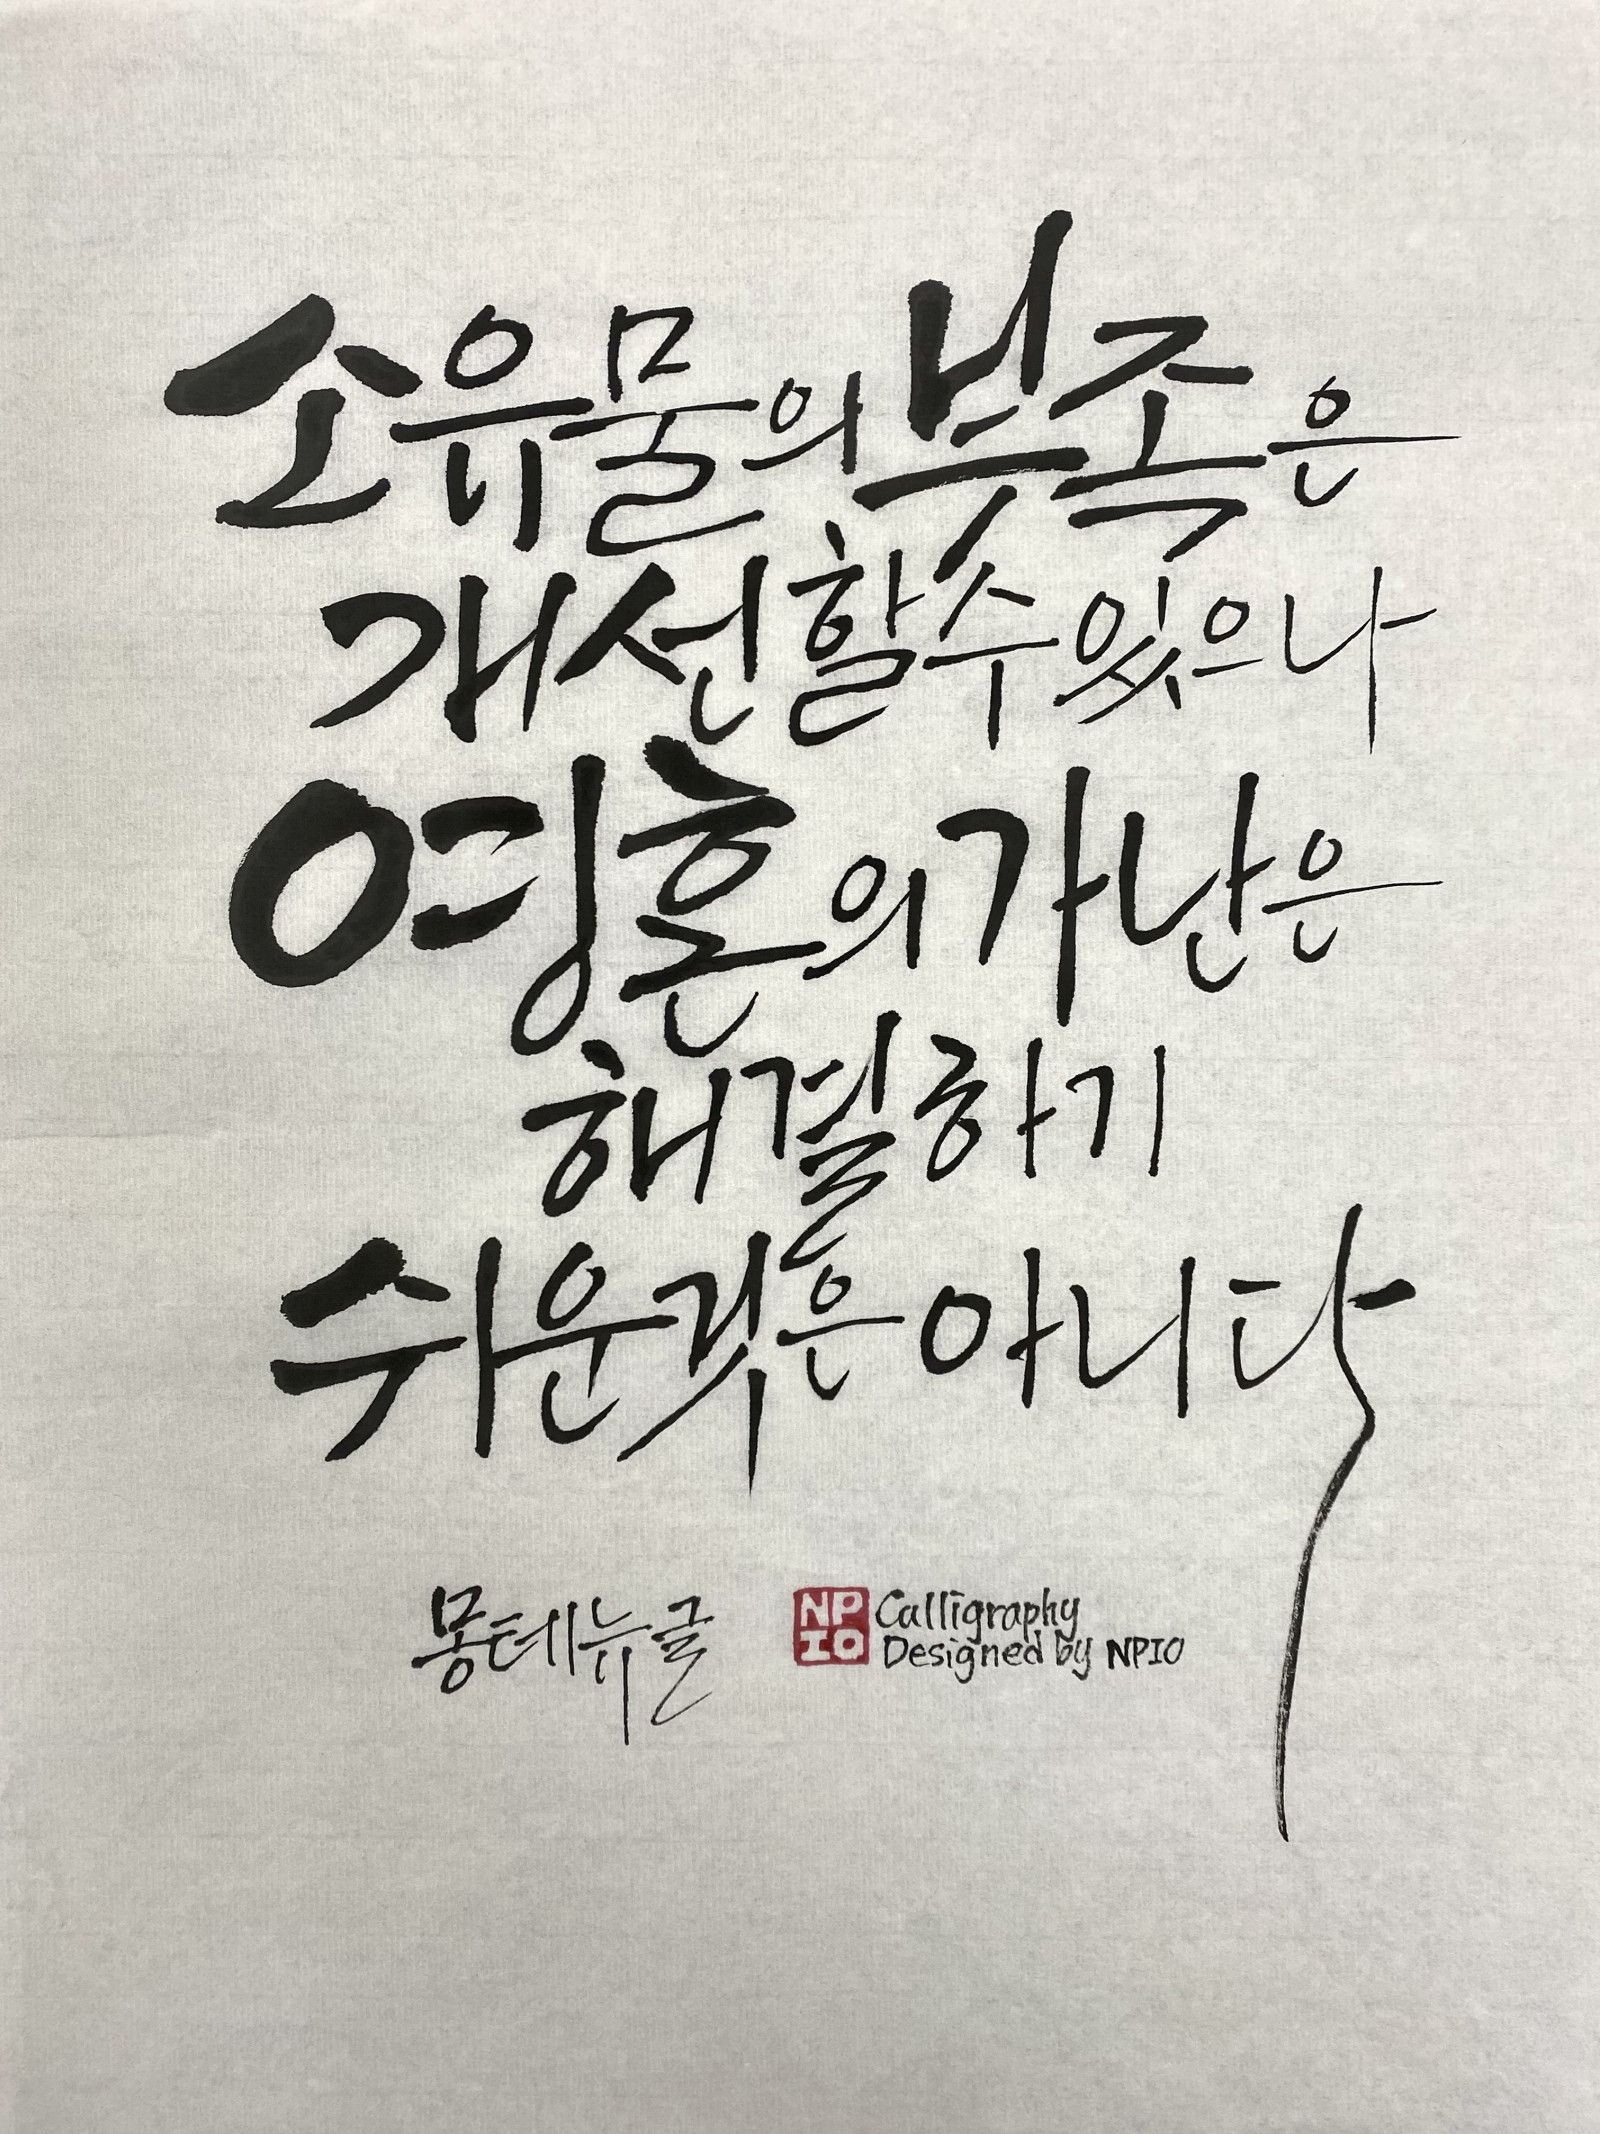 소유물의 부족은
개선할 수 있으나
영혼의 가난은
해결하기
쉬운 것은 아니다
몽테뉴 글
NP
IO
Calligraphy
Designed by NPIO